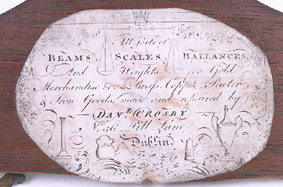 All sorts of
BEAMS, SCALES, BALLANCES,
And Weights for Gold
Merchandise &c. Copper, Pewter
& Iron Goods, made and repaired by
DAVD. CROSBY
No. 36 Pill Lane
Dublin